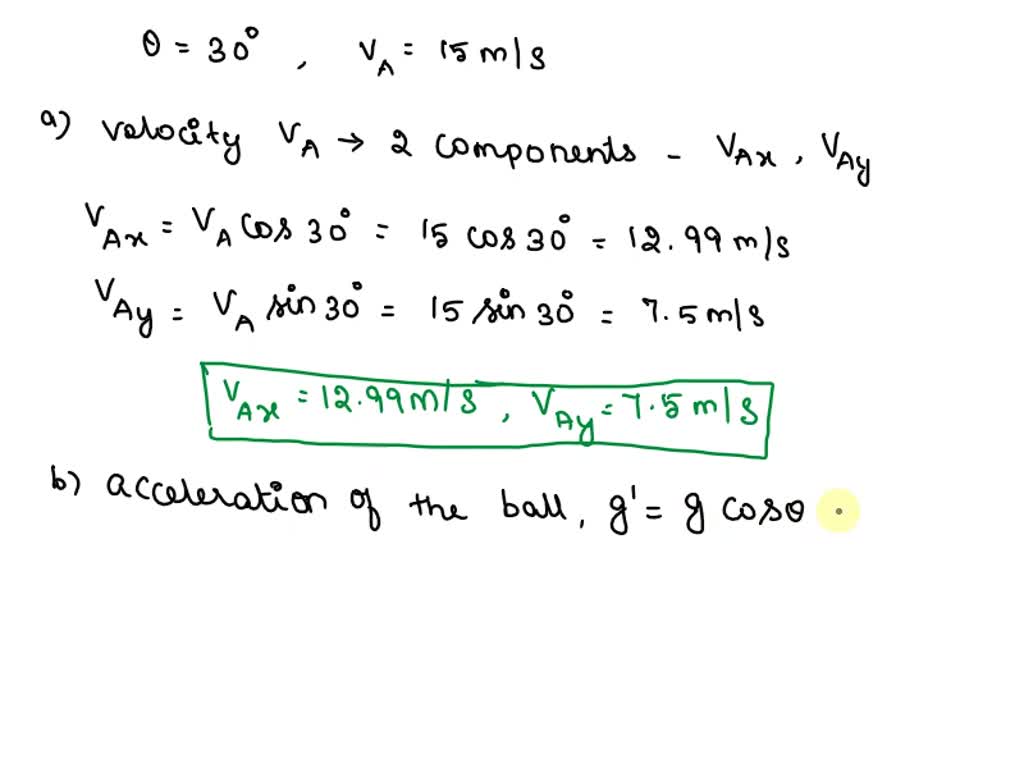 θ = 30° , V_A = 15 m/s
a) velocity V_A → 2 components - V_Ax , V_Ay
V_Ax = V_A cos 30° = 15 cos 30° = 12.99 m/s
V_Ay = V_A sin 30° = 15 sin 30° = 7.5 m/s
V_Ax = 12.99 m/s , V_Ay = 7.5 m/s
b) acceleration of the ball, g' = g cosθ